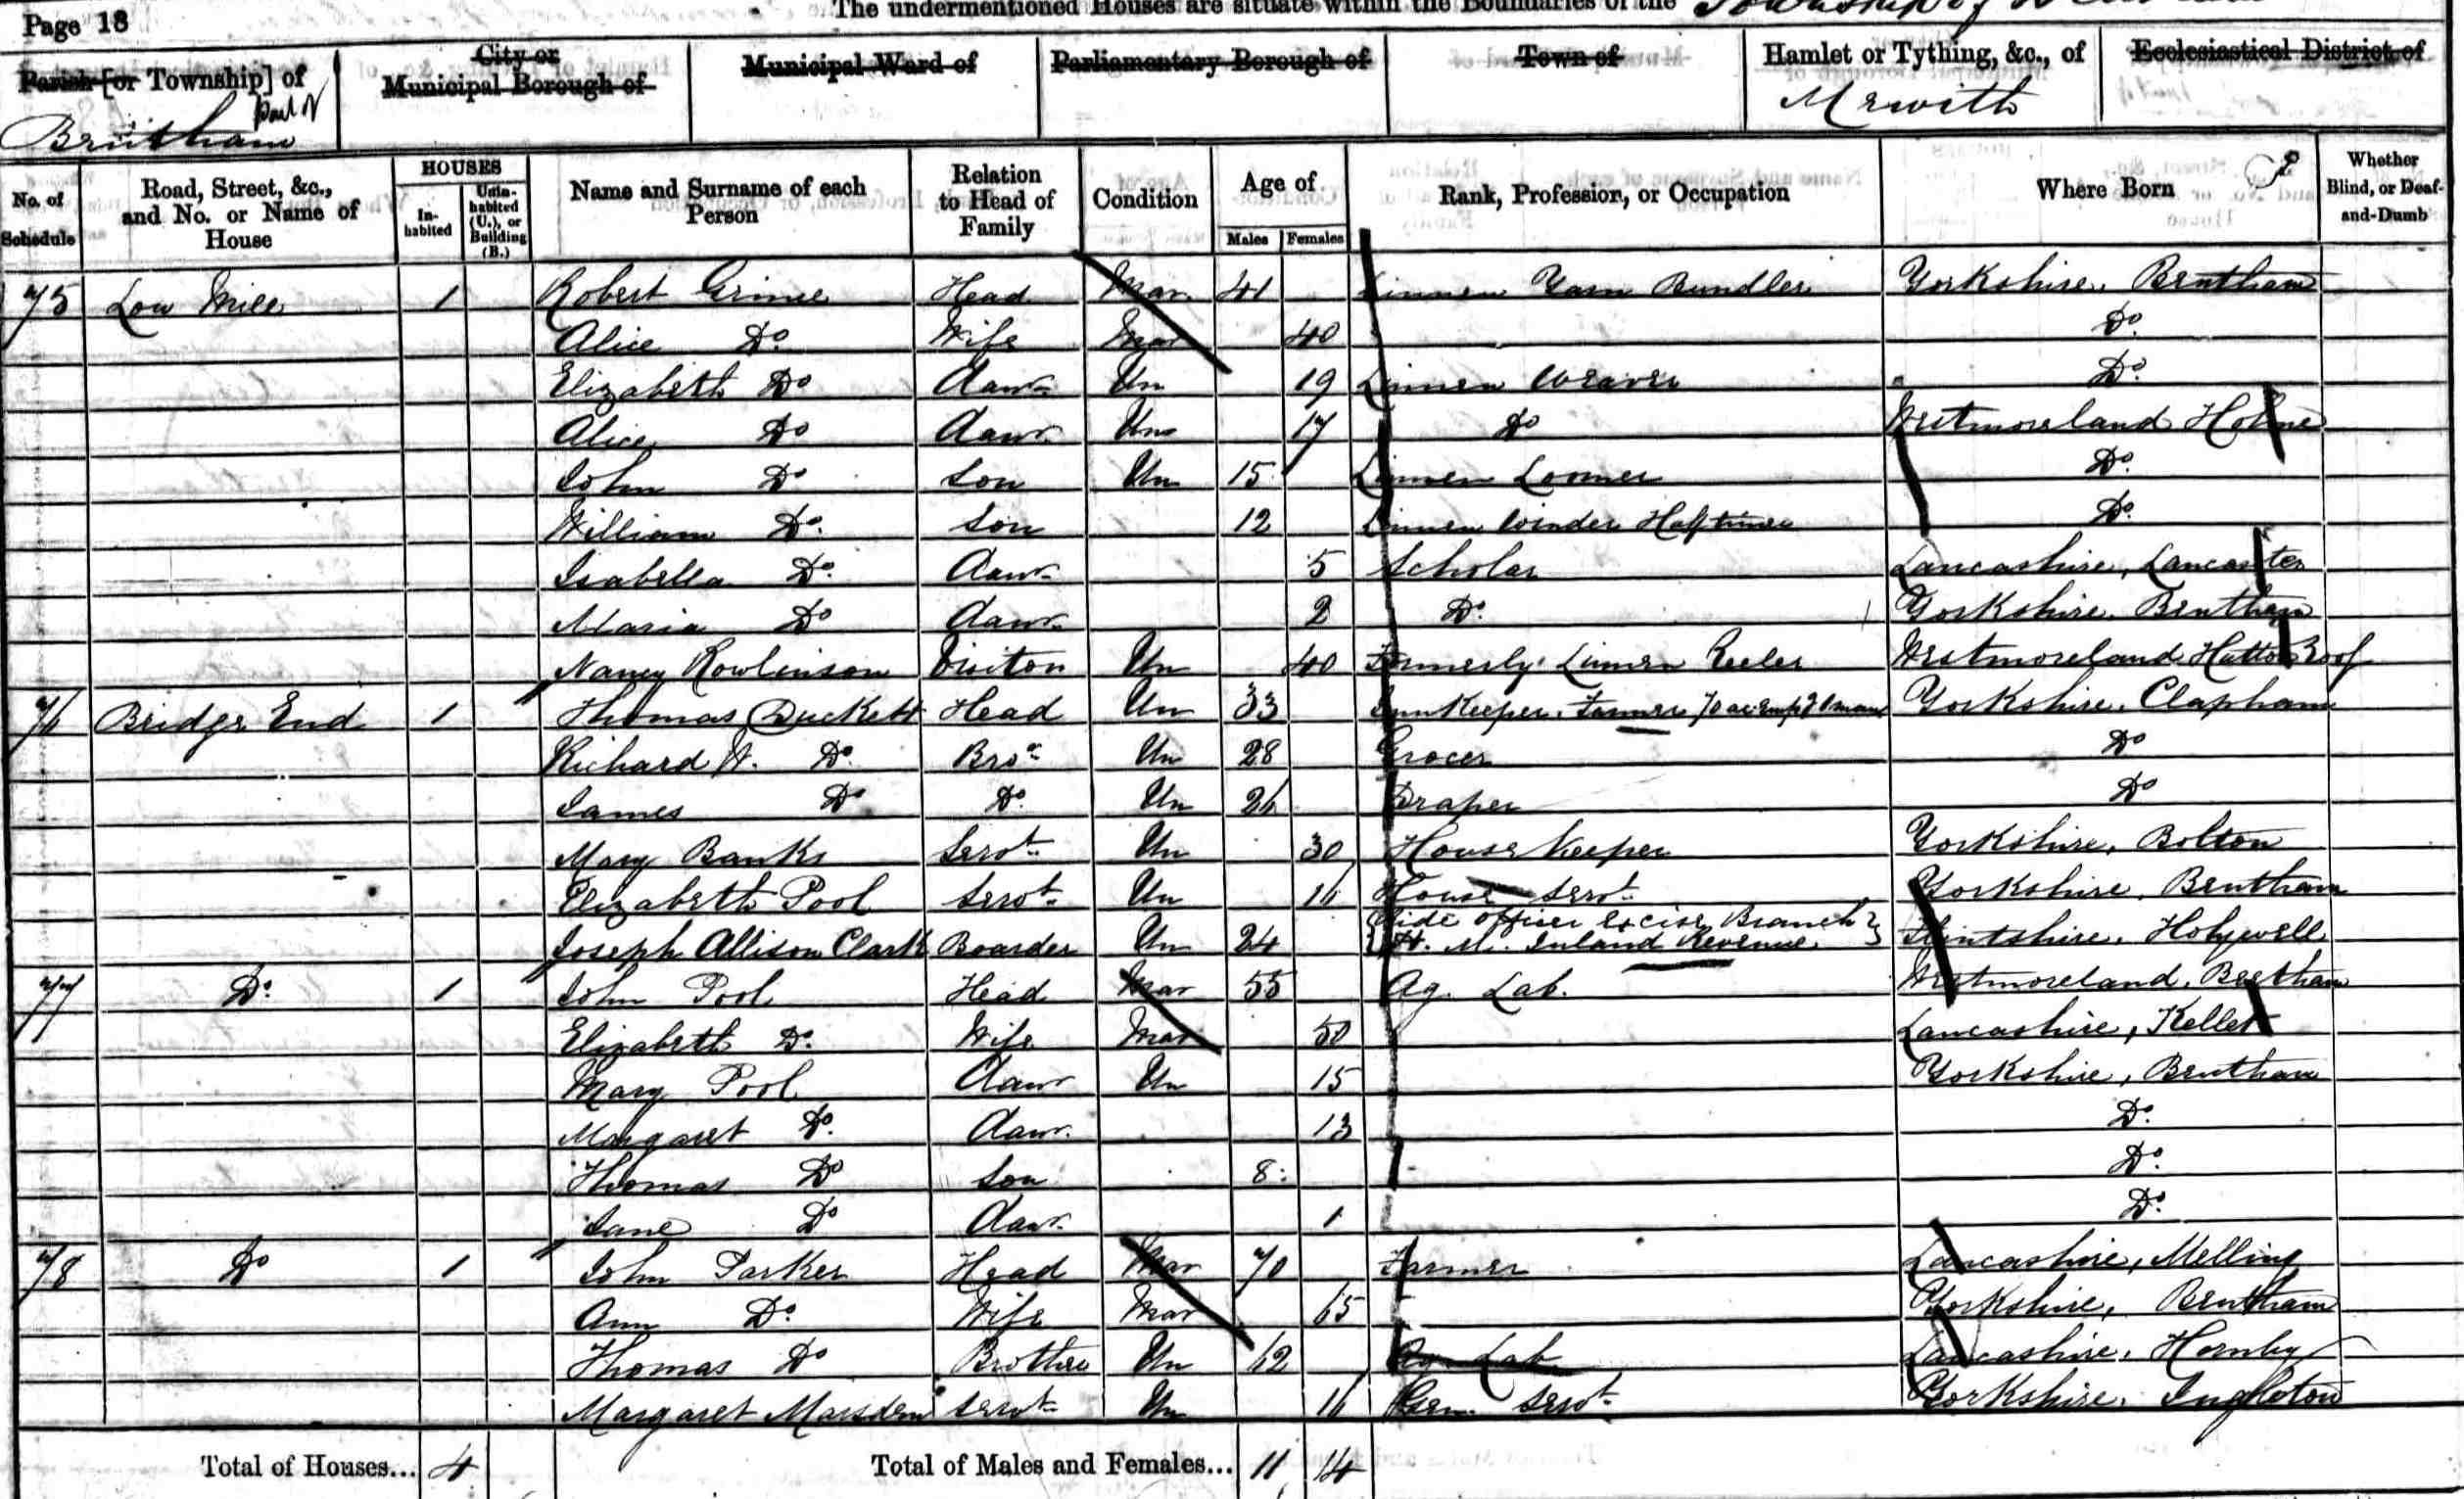 Page 18
The undermentioned Houses are situate within the Boundaries of the Township of
Parish [or Township] of
City or Municipal Borough of
Municipal Ward of
Parliamentary Borough of
Town of
Hamlet or Tything, &c., of
Ecclesiastical District of
Bentham part of
Mewith
No. of Schedule
Road, Street, &c., and No. or Name of House
HOUSES
In-habited
Unin-habited (U.), or Building (B.)
Name and Surname of each Person
Relation to Head of Family
Condition
Age of
Males
Females
Rank, Profession, or Occupation
Where Born
Whether Blind, or Deaf-and-Dumb
75 Low Mill 1 Robert Head Mar 41 Linnen Yarn Bundler Yorkshire, Bentham
Alice Do. Wife Mar 40 Do.
Elizabeth Do Dawr. Un 19 Linnen Weaver Do.
Alice Do Dawr. Un 17 Do Westmoreland Holme
John Do Son Un 15 Linnen Loomer Do.
William Do. Son 12 Linnen Winder Halftimer Do.
Isabella Do. Dawr. 5 Scholar Lancashire, Lancaster
Maria Do Dawr. 2 Do. Yorkshire. Bentham
Nancy Rowlinson Visitor Un 40 Formerly Linnen Reeler Westmoreland Hutton Roof
76 Bridge End 1 Thomas Duckett Head Un 33 Innkeeper. Farmer 70 ac Emp 1 man Yorkshire. Clapham
Richard W. Do. Bror. Un 28 Grocer Do
James Do Do. Un 26 Draper Do
Mary Banks Servt. Un 30 House keeper Yorkshire. Bolton
Elizabeth Pool Servt. Un 16 House Servt. Yorkshire. Bentham
Joseph Allison Clark Boarder Un 24 Ride Officer Excise Branch H. M. Inland Revenue. Flintshire. Holywell
77 Do. 1 John Pool Head Mar 55 Ag. Lab. Westmoreland. Beetham
Elizabeth Do. Wife Mar 50 Lancashire, Kellet
Mary Pool Dawr Un 15 Yorkshire, Bentham
Margaret Do. Dawr. 13 Do.
Thomas Do Son 8 Do.
Jane Do Dawr. 1 Do.
78 Do 1 John Parker Head Mar 70 Farmer Lancashire, Melling
Ann Do. Wife Mar 65 Yorkshire, Bentham
Thomas Do Brother Un 62 Ag. Lab Lancashire. Hornby
Margaret Marsden Servt. Un 16 Gen. Servt. Yorkshire. Ingleton
Total of Houses... 4 Total of Males and Females... 11 14